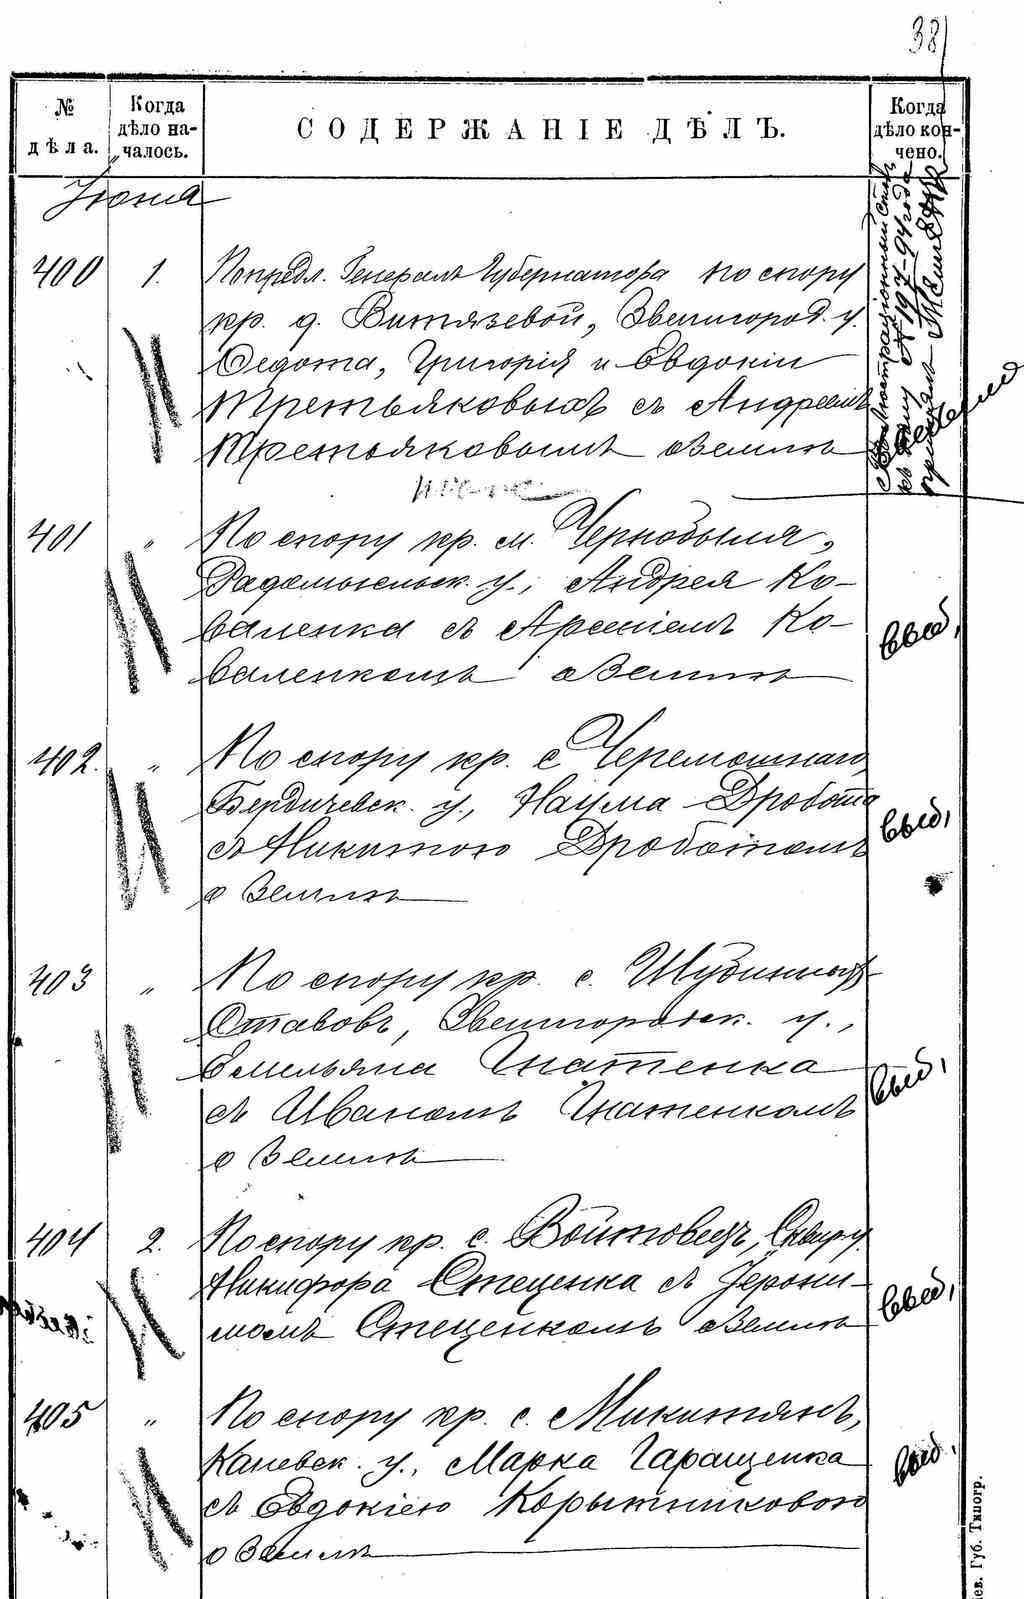 38
№ дѣла.
Когда дѣло началось.
СОДЕРЖАНІЕ ДѢЛЪ.
Когда дѣло кончено.
Іюня
400 1. По предл. Генералъ Губернатора по спору
кр. д. Витязевой, Звенигород. у.
Ѳедота, Григорія и Евдокіи
Третьяковыхъ съ Андреемъ
Третьяковымъ о землѣ
401 " По спору кр. м. Чернобыля,
Радомысльск. у., Андрея Ко-
валенка съ Арсеніемъ Ко-
валенкомъ о землѣ
выд,
402. " По спору кр. с. Черемошнаго,
Бердичевск. у., Наума Дробота
съ Никитою Дроботомъ
о землѣ
выд,
403 " По спору кр. с. Шубиныхъ
Ставовъ, Звенигородск. у.,
Емельяна Гнатенка
съ Иваномъ Гнатенкомъ
о землѣ
выд,
404 2. По спору кр. с. Войтовецъ, Сквир. у.
Никифора Стеценка съ Іерони-
момъ Стеценкомъ о землѣ
выд,
405 " По спору кр. с. Микитянъ,
Каневск. у., Марка Гаращенка
съ Евдокіею Корытниковою
о землѣ
выд.
іев. Губ. Типогр.